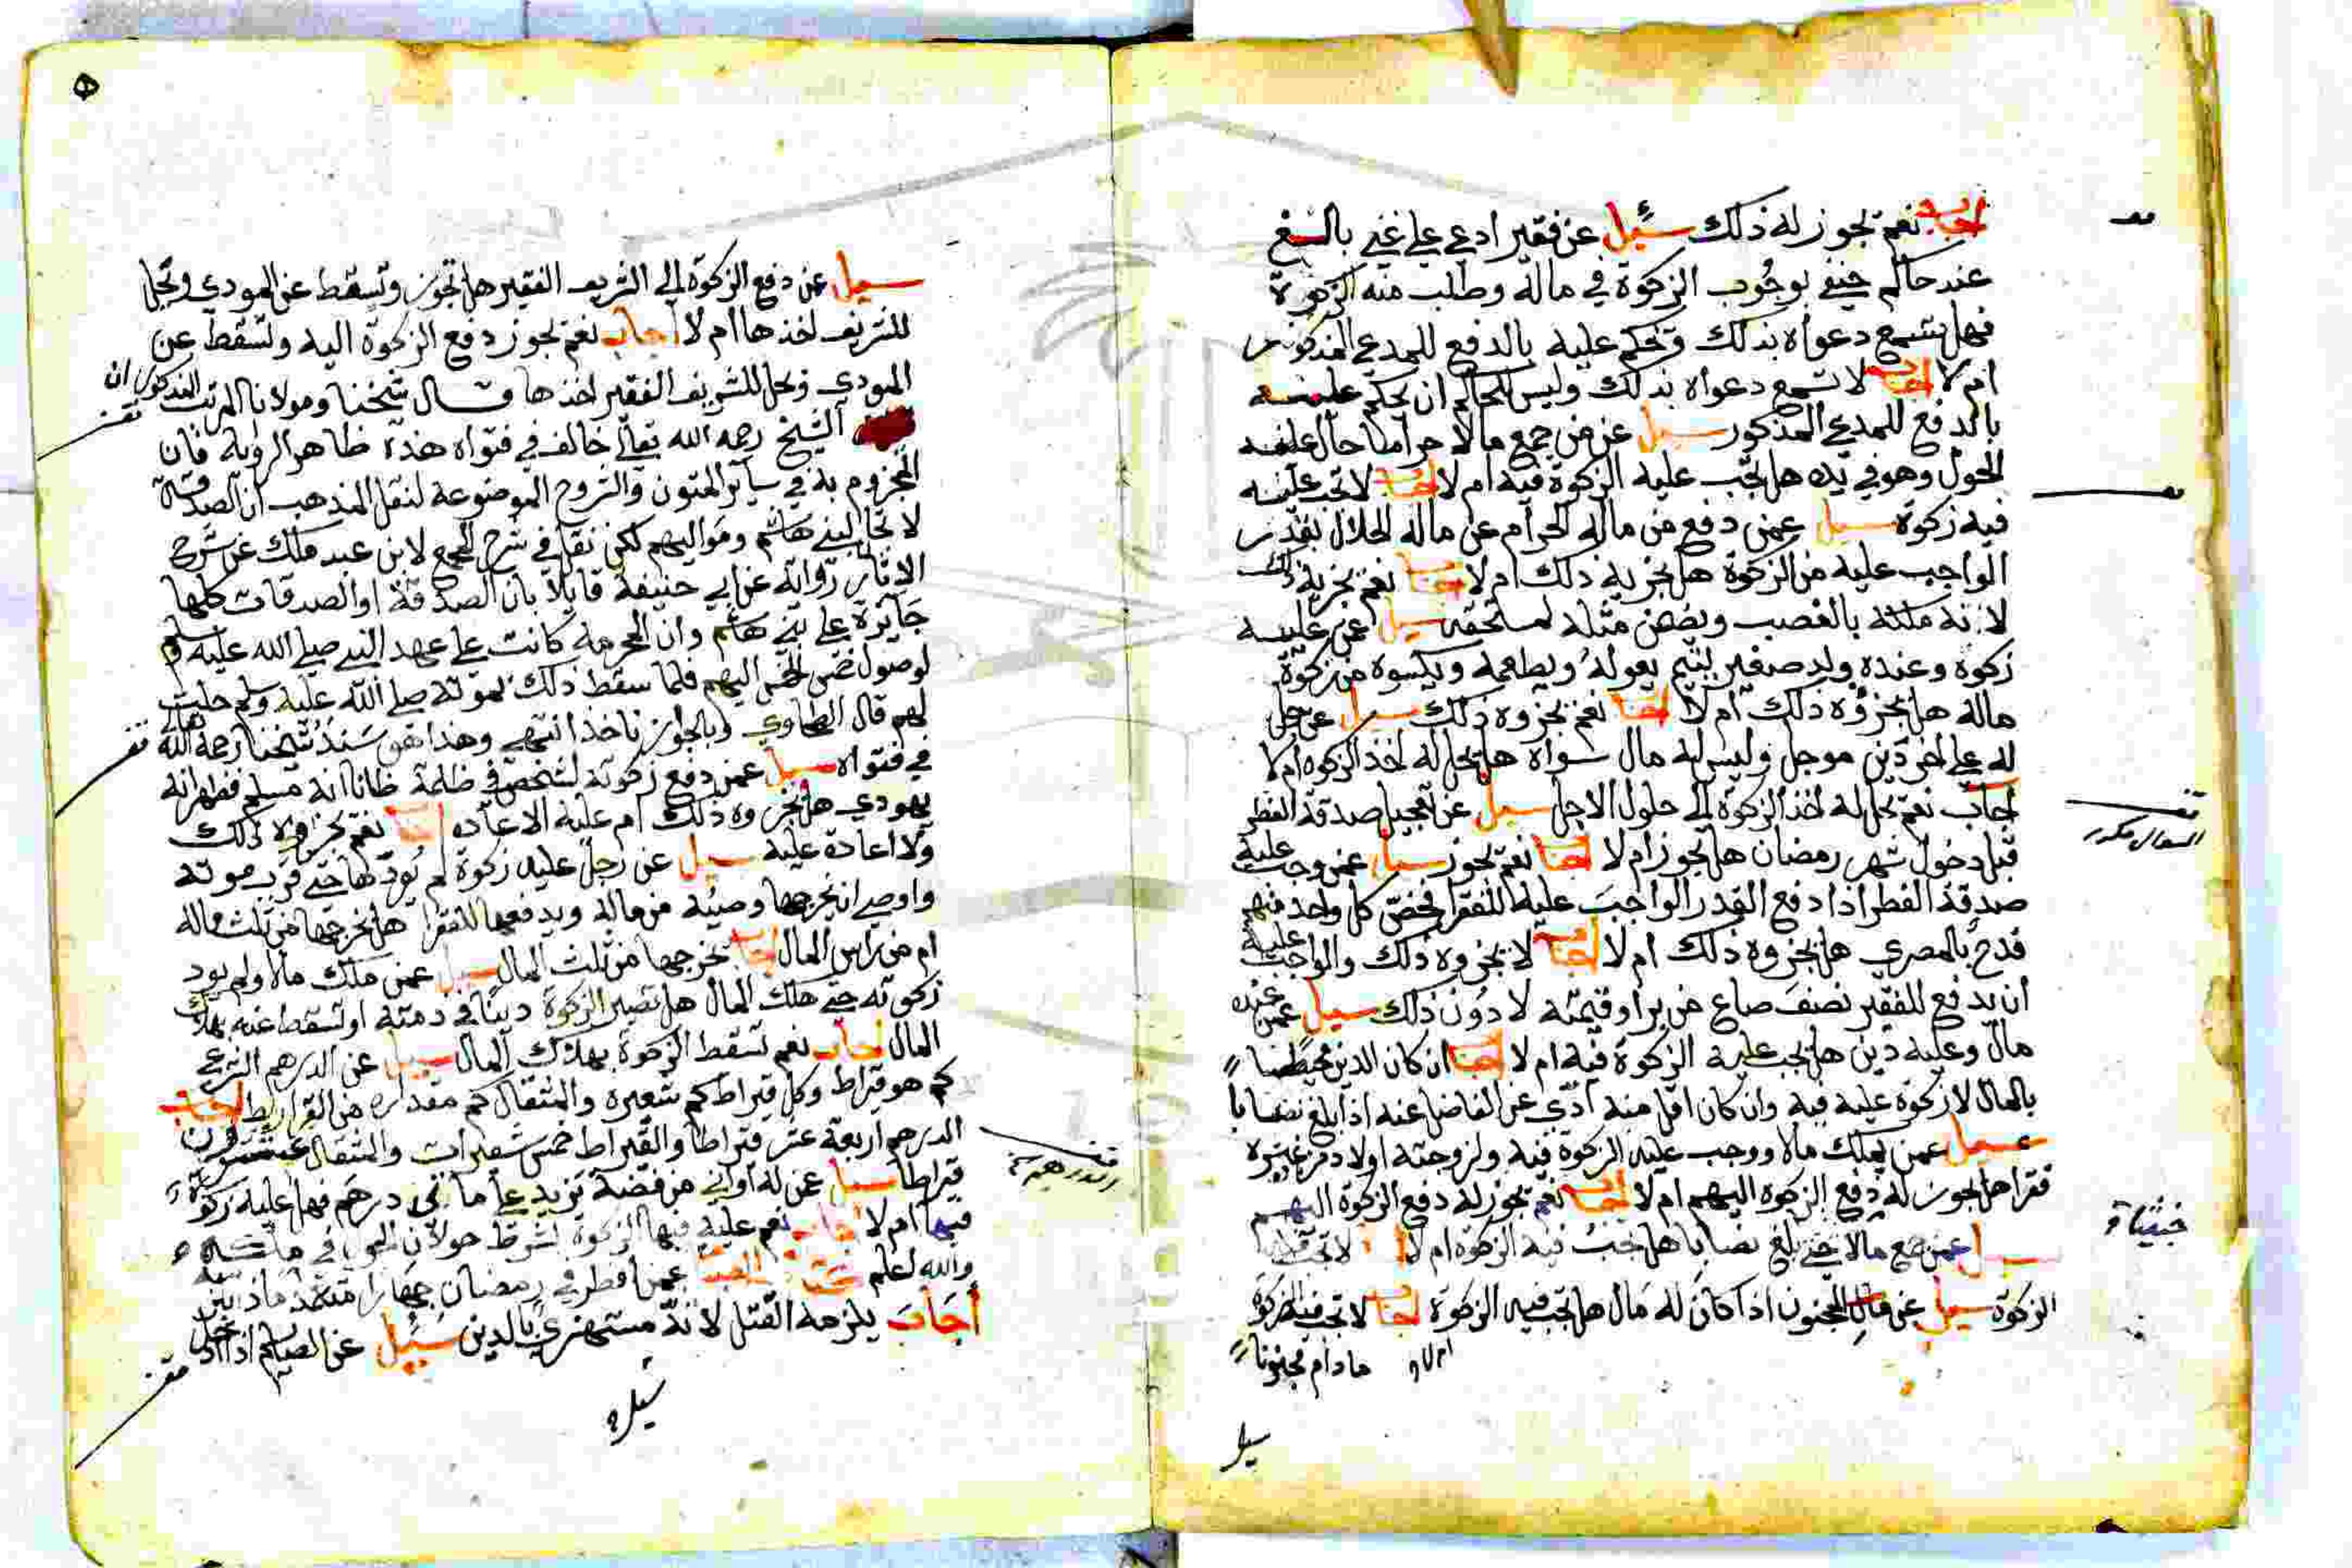 اجاب نعم يجوز له ذلك سئيل عن فقير ادعي علي غني بالشغ
عند حاكم حنفي بوجوب الزكوة في ماله وطلب منه الزكوة
فهل تسمع دعواه بذلك ويحكم عليه بالدفع للمدعي المذكور
ام لا اجاب لا تسمع دعواه بذلك وليس للحاكم ان يحكم عليه
بالدفع للمدعي المذكور سيل عن من جمع مالا حراما حال عليه
الحول وهو في يده هل تجب عليه الزكوة فيه ام لا اجاب لا تجب عليه
فيه زكوة سيل عمن دفع من ماله الحرام عن ماله الحلال بقدر
الواجب عليه من الزكوة هل يجزيه ذلك ام لا اجاب نعم يجزيه ذلك
لانه ملكه بالغصب ويضمن مثله لمستحقه سيل عمن عليه
زكوة وعنده ولد صغير يتيم يعوله ويطعمه ويكسوه من زكوة
ماله هل يجزؤه ذلك ام لا اجاب نعم يجزوه ذلك سيل عن رجل
له علي اخر دين موجل وليس له مال سواه هل يحل له اخذ الزكوه ام لا
اجاب نعم يحل له اخذ الزكوة الي حلول الاجل سيل عن تعجيل صدقة الفطر
قبل دخول شهر رمضان هل يجوز ام لا اجاب نعم يجوز سيل عمن وجب عليه
صدقة الفطر اذا دفع القدر الواجب عليه للفقرا فخص كل واحد منهم
قدح بالمصري هل يجزوه ذلك ام لا اجاب لا يجزوه ذلك والواجب عليه
ان يدفع للفقير نصف صاع من بر او قيمته لا دون ذلك سيل عمن عنده
مال وعليه دين هل يجب عليه الزكوة فيه ام لا اجاب ان كان الدين محيطا
بالمال لا زكوة عليه فيه وان كان اقل منه ادي عن الفاضل عنه اذا بلغ نصابا
سيل عمن يملك مالا ووجب عليه الزكوة فيه ولزوجته اولاد من غيره
فقرا هل يجوز له دفع الزكوة اليهم ام لا اجاب نعم يجوز له دفع الزكوة اليهم
سيل عمن جمع مالا حتي بلغ نصابا هل تجب فيه الزكوة ام لا لا تجب
الزكوة سيل عن مال المجنون اذا كان له مال هل تجب فيه الزكوة اجاب لا تجب فيه الزكوة
ام لا
ما دام مجنونا
سيل
السوال مكرر
سيل عن دفع الزكوة الي الشريف الفقير هل تجوز وتسقط عن المودي وتحل
للشريف اخذها ام لا اجاب نعم يجوز دفع الزكوة اليه ولتسقط عن
المودي ويحل للشريف الفقير اخذها قال شيخنا ومولانا المرتب المذكور ان
الشيخ رحمه الله تعالي خالف في فتواه هذه ظاهر الرواية فان
المجزوم به في ساير المتون والشروح الموضوعة لنقل المذهب ان الصدقة
لا تحل لبني هاشم ومواليهم لكن نقل في شرح المجمع لابن عبد ملك عن شرح
الاثار رواية عن ابي حنيفة قايلا بان الصدقة او الصدقات كلها
جايزة علي بني هاشم وان الحرمة كانت علي عهد النبي صلي الله عليه وسلم
لوصول خمس الخمس اليهم فلما سقط ذلك بموته صلي الله عليه وسلم حلت
لهم قال الطحاوي وبالجواز ناخذ انتهي وهذا هو سند شيخنا رحمه الله تعالي
في فتواه سيل عمن دفع زكوته لشخص في ظلمة ظانا انه مسلم فظهر انه
يهودي هل يجزوه ذلك ام عليه الاعاده اجاب نعم يجزوه ذلك
ولا اعادة عليه سيل عن رجل عليه زكوة لم يودها حتي قرب موته
واوصي ان يخرجها وصيه من ماله ويدفعها للفقرا هل يخرجها من ثلث ماله
ام من راس المال اجاب يخرجها من ثلث المال سيل عمن ملك مالا ولم يود
زكوته حتي هلك المال هل تصير الزكوة دينا في ذمته او تسقط عنه بهلاك
المال اجاب نعم تسقط الزكوة بهلاك المال سيل عن الدرهم الشرعي
كم هو قيراط وكل قيراط كم شعيره والمثقال كم مقداره من القراريط اجاب
الدرهم اربعة عشر قيراطا والقيراط خمس شعيرات والمثقال عشرون
قيراطا سيل عن له اواني من فضة تزيد علي مائتي درهم فهل عليه زكوة
فيها ام لا اجاب نعم عليه فيها الزكوة بشرط حولان الحول في ملكه
والله اعلم عمن افطر في رمضان جهارا متعمدا ماذا
أجاب يلزمه القتل لانه مستهزي بالدين سئيل عن الصايم اذا دخل
سيل